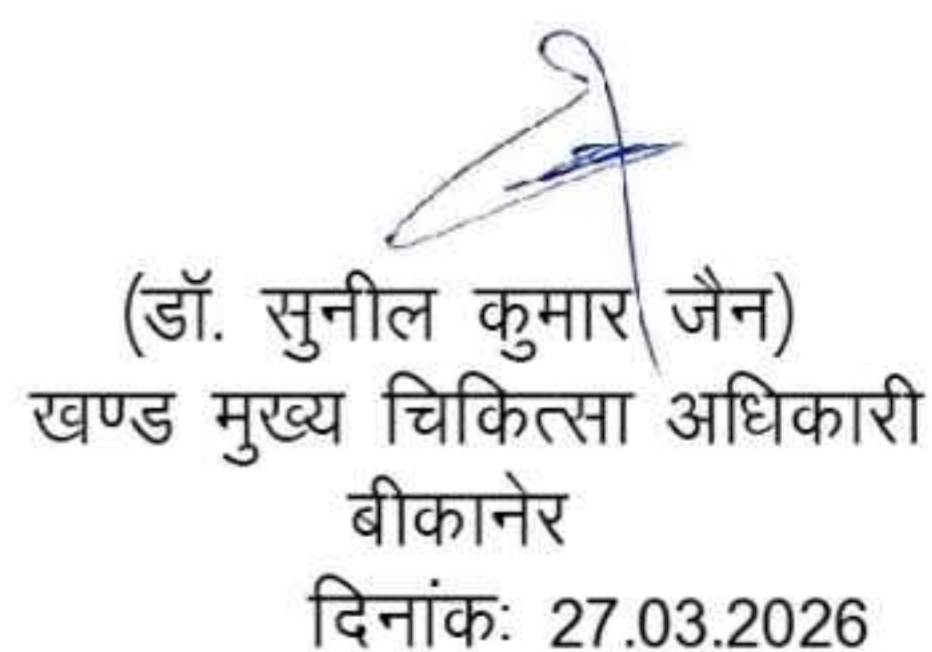 (डॉ. सुनील कुमार जैन)
खण्ड मुख्य चिकित्सा अधिकारी
बीकानेर
दिनांक: 27.03.2026